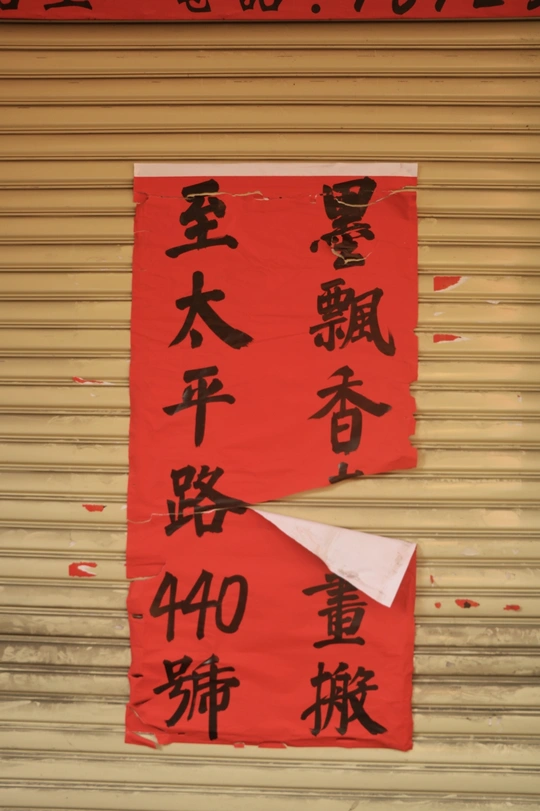 電話:
墨飄香
畫搬
至太平路440號